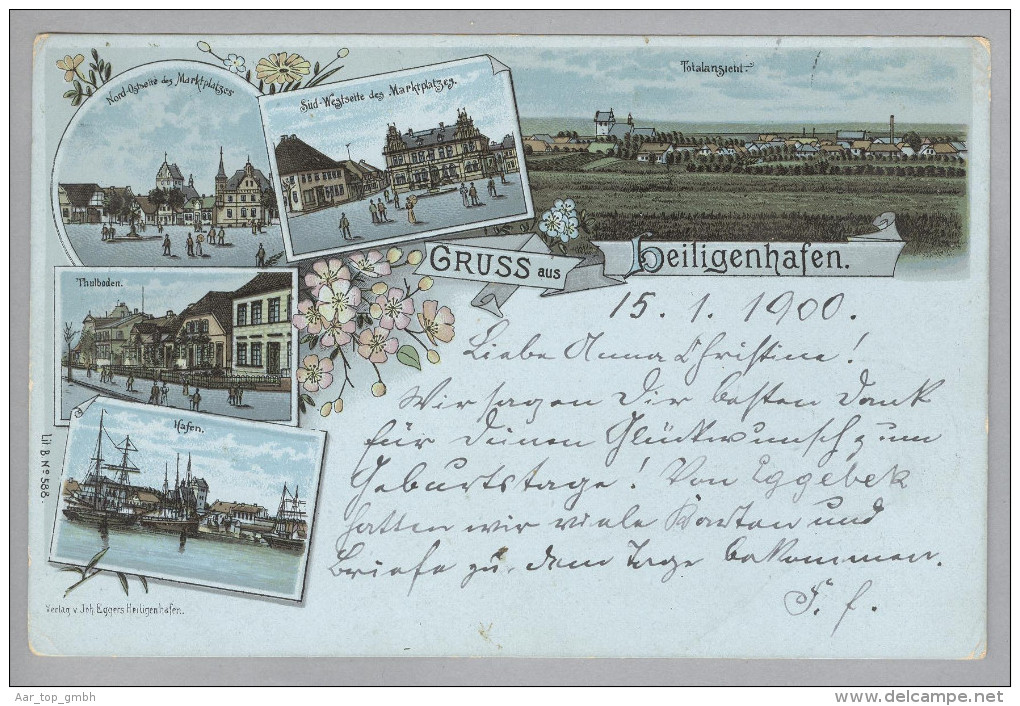 Nord-Ostseite des Marktplatzes
Süd-Westseite des Marktplatzes.
Totalansicht.
GRUSS aus Heiligenhafen.
Thulboden.
Hafen.
15. 1. 1900.
Liebe Anna Christine!
Wir sagen Dir besten Dank
für Deinen Glückwunsch zum
Geburtstage! Von Eggebek
hatten wir viele Karten und
Briefe zu dem Tage bekommen.
Lit. B. No 588.
Verlag v. Joh. Eggers Heiligenhafen.
Aar_top_gmbh
www.delcampe.net